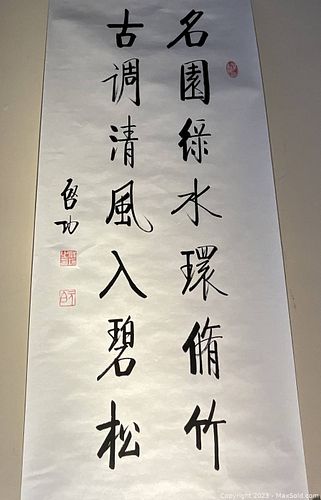 名園綠水環脩竹
古调清風入碧松
啓功
Copyright 2023 - MaxSold.com